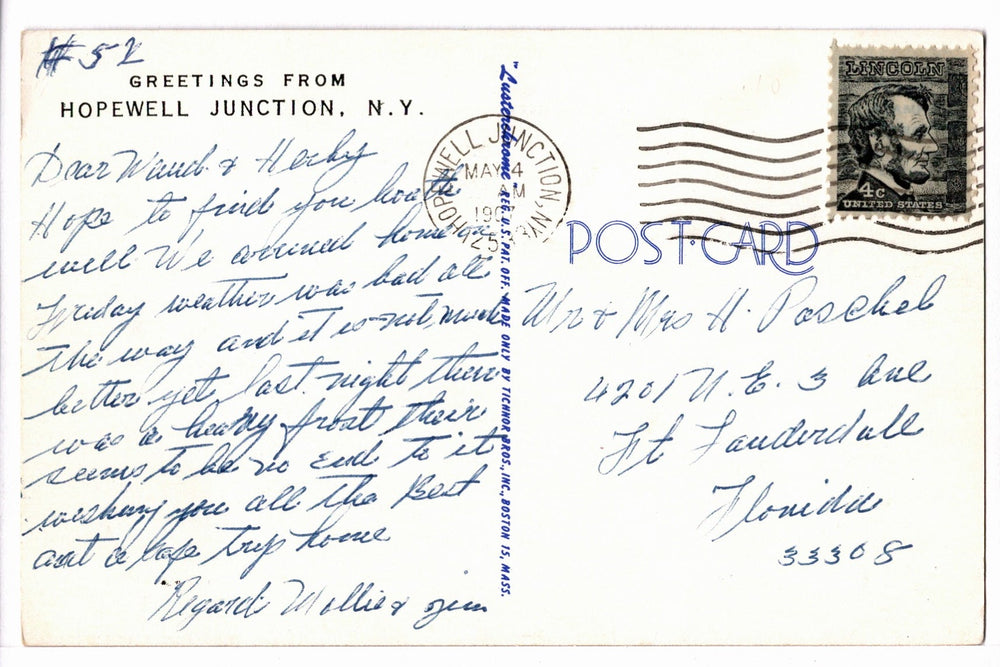 # 52
GREETINGS FROM
HOPEWELL JUNCTION, N.Y.
Dear & Herby
Hope to find you both
well We arrived home on
Friday weather was bad all
the way and it is not much
better yet last night there
was a heavy frost their
seems to be no end to it
wishing you all the Best
and a safe trip home
Regards Mollie & Jim
"Lusterchrome" REG. U.S. PAT. OFF. MADE ONLY BY TICHNOR BROS., INC., BOSTON 15, MASS.
HOPEWELL JUNCTION, N.Y.
MAY 4
AM
POST CARD
LINCOLN
4c
UNITED STATES
Mr & Mrs H. Paschel
4201 N.E. 3 Ave
Ft Lauderdale
Florida
33308